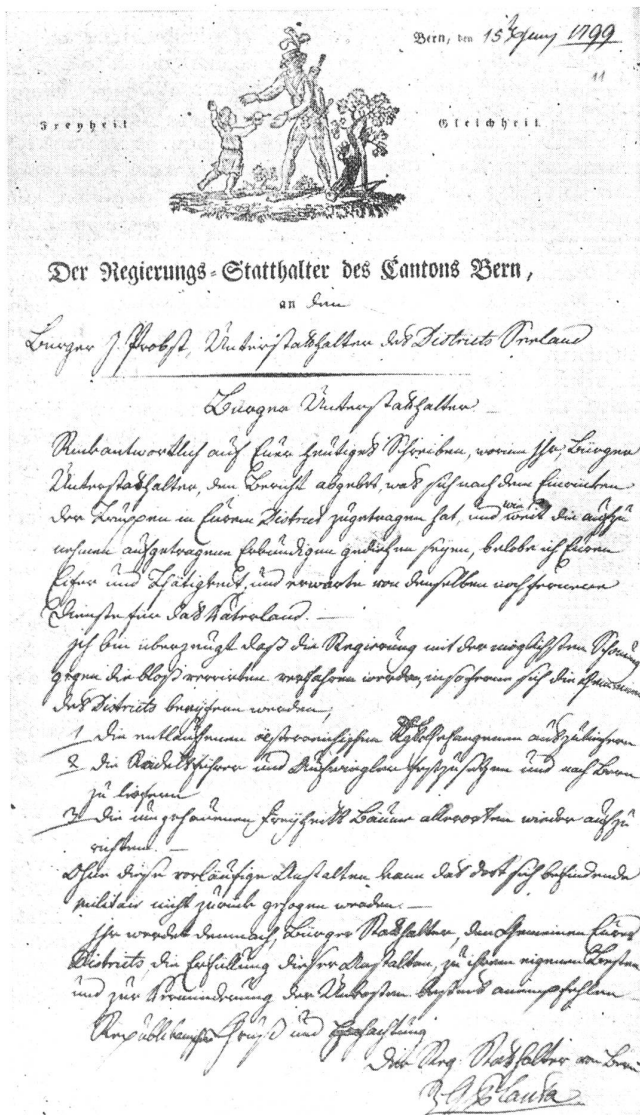 Bern, den 15t Juny 1799
11
Freyheit
Gleichheit
Der Regierungs-Statthalter des Cantons Bern,
an den
Bürger J. Probst, Unterstatthalter des Districts Seeland
Bürger Unterstatthalter
Rückantwortlich auf Euer heutiges Schreiben, worinn Ihr, Bürger
Unterstatthalter, den Bericht abgebet, was sich nach dem Einrücken
der Truppen in Eurem District zugetragen hat, und wie weit die aufzu
nehmen aufgetragene Erkundigen gediehen seyen, belobe ich Euren
Eifer und Thätigkeit, und erwarte von denselben noch fernere
Dienste für das Vaterland. —
Ich bin überzeugt daß die Regierung mit der möglichsten Schonung
gegen die bloß verirrten verfahren werden, insoferne sich die Gemeinen
des Districts beeifern werden,
1 die entlaufenen oesterreichischen Kriegsgefangenen auszuliefern
2 die Rädelsführer und Aufwiegler festzusetzen und nach Bern
zu liefern
3 die umgehauenen Freyheits Bäume allerorten wieder aufzu
richten. —
Ohne diese vorläufige Anstalten kann das dort sich befindende
Militair nicht zurück gezogen werden. —
Ihr werdet demnach, Bürger Statthalter, den Gemeinen Eures
Districts, die Erfüllung dieser Anstalten, zu ihrem eigenen Besten
und zur Verminderung der Unkosten bestens anempfehlen
Republikanischer Gruß und Hochachtung
Der Reg. Statthalter von Bern